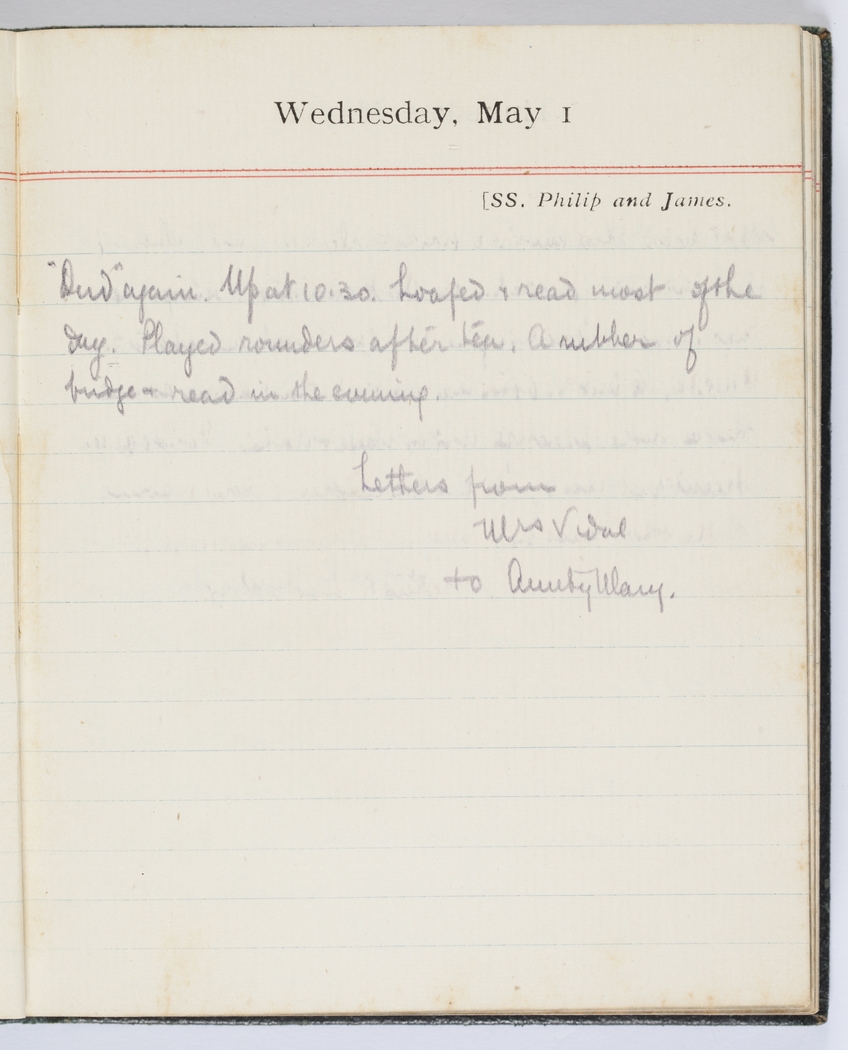 Wednesday, May 1
[SS. Philip and James.
"Dud" again. Up at 10.30. Loafed & read most of the
day. Played rounders after tea. A rubber of
bridge & read in the evening.
Letters from
Mrs Vidal
to Aunty Mary.